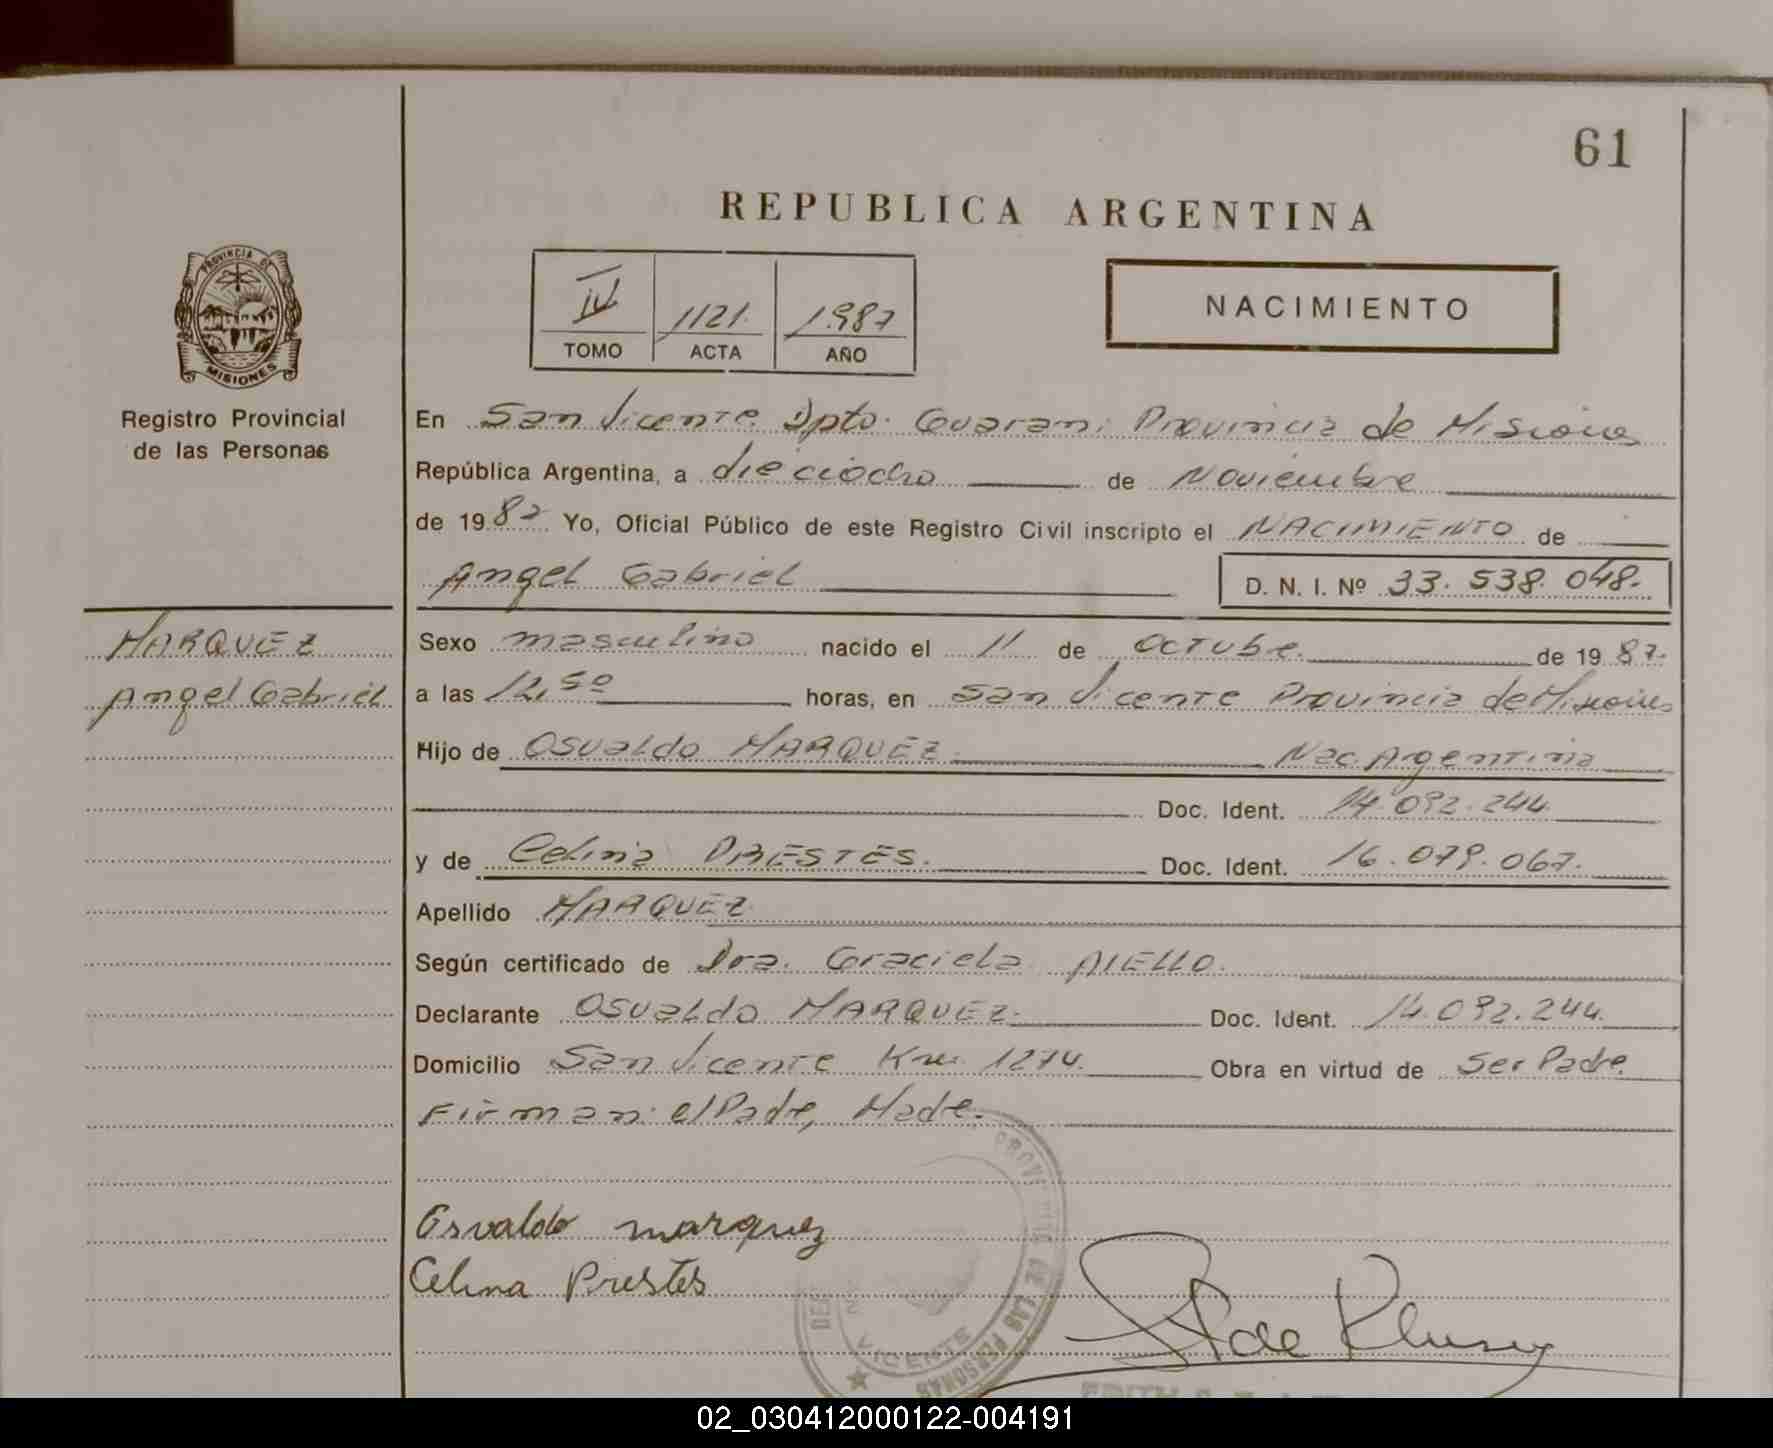 61
REPUBLICA ARGENTINA
PROVINCIA DE
MISIONES
Registro Provincial
de las Personas
IV 1121. 1.987
TOMO ACTA AÑO
NACIMIENTO
En San Vicente. Dpto. Guarani Provincia de Misiones
República Argentina, a dieciocho de Noviembre
de 1987 Yo, Oficial Público de este Registro Civil inscripto el NACIMIENTO de
Angel Gabriel D. N. I. Nº 33.538.048.
MARQUEZ
Angel Gabriel
Sexo masculino nacido el 11 de Octubre. de 1987.
a las 12,50 horas, en San Vicente Provincia de Misiones
Hijo de Osvaldo MARQUEZ. Nac. Argentina
Doc. Ident. 14.092.244.
y de Celina PRESTES. Doc. Ident. 16.079.067.
Apellido MARQUEZ
Según certificado de Dra. Graciela AIELLO.
Declarante Osvaldo MARQUEZ. Doc. Ident. 14.092.244.
Domicilio San Vicente Km. 1274. Obra en virtud de Ser Padre
Firman: el Padre, Madre.
Osvaldo marquez
Celina Prestes
DE LAS PERSONAS
VICENTE
02_030412000122-004191